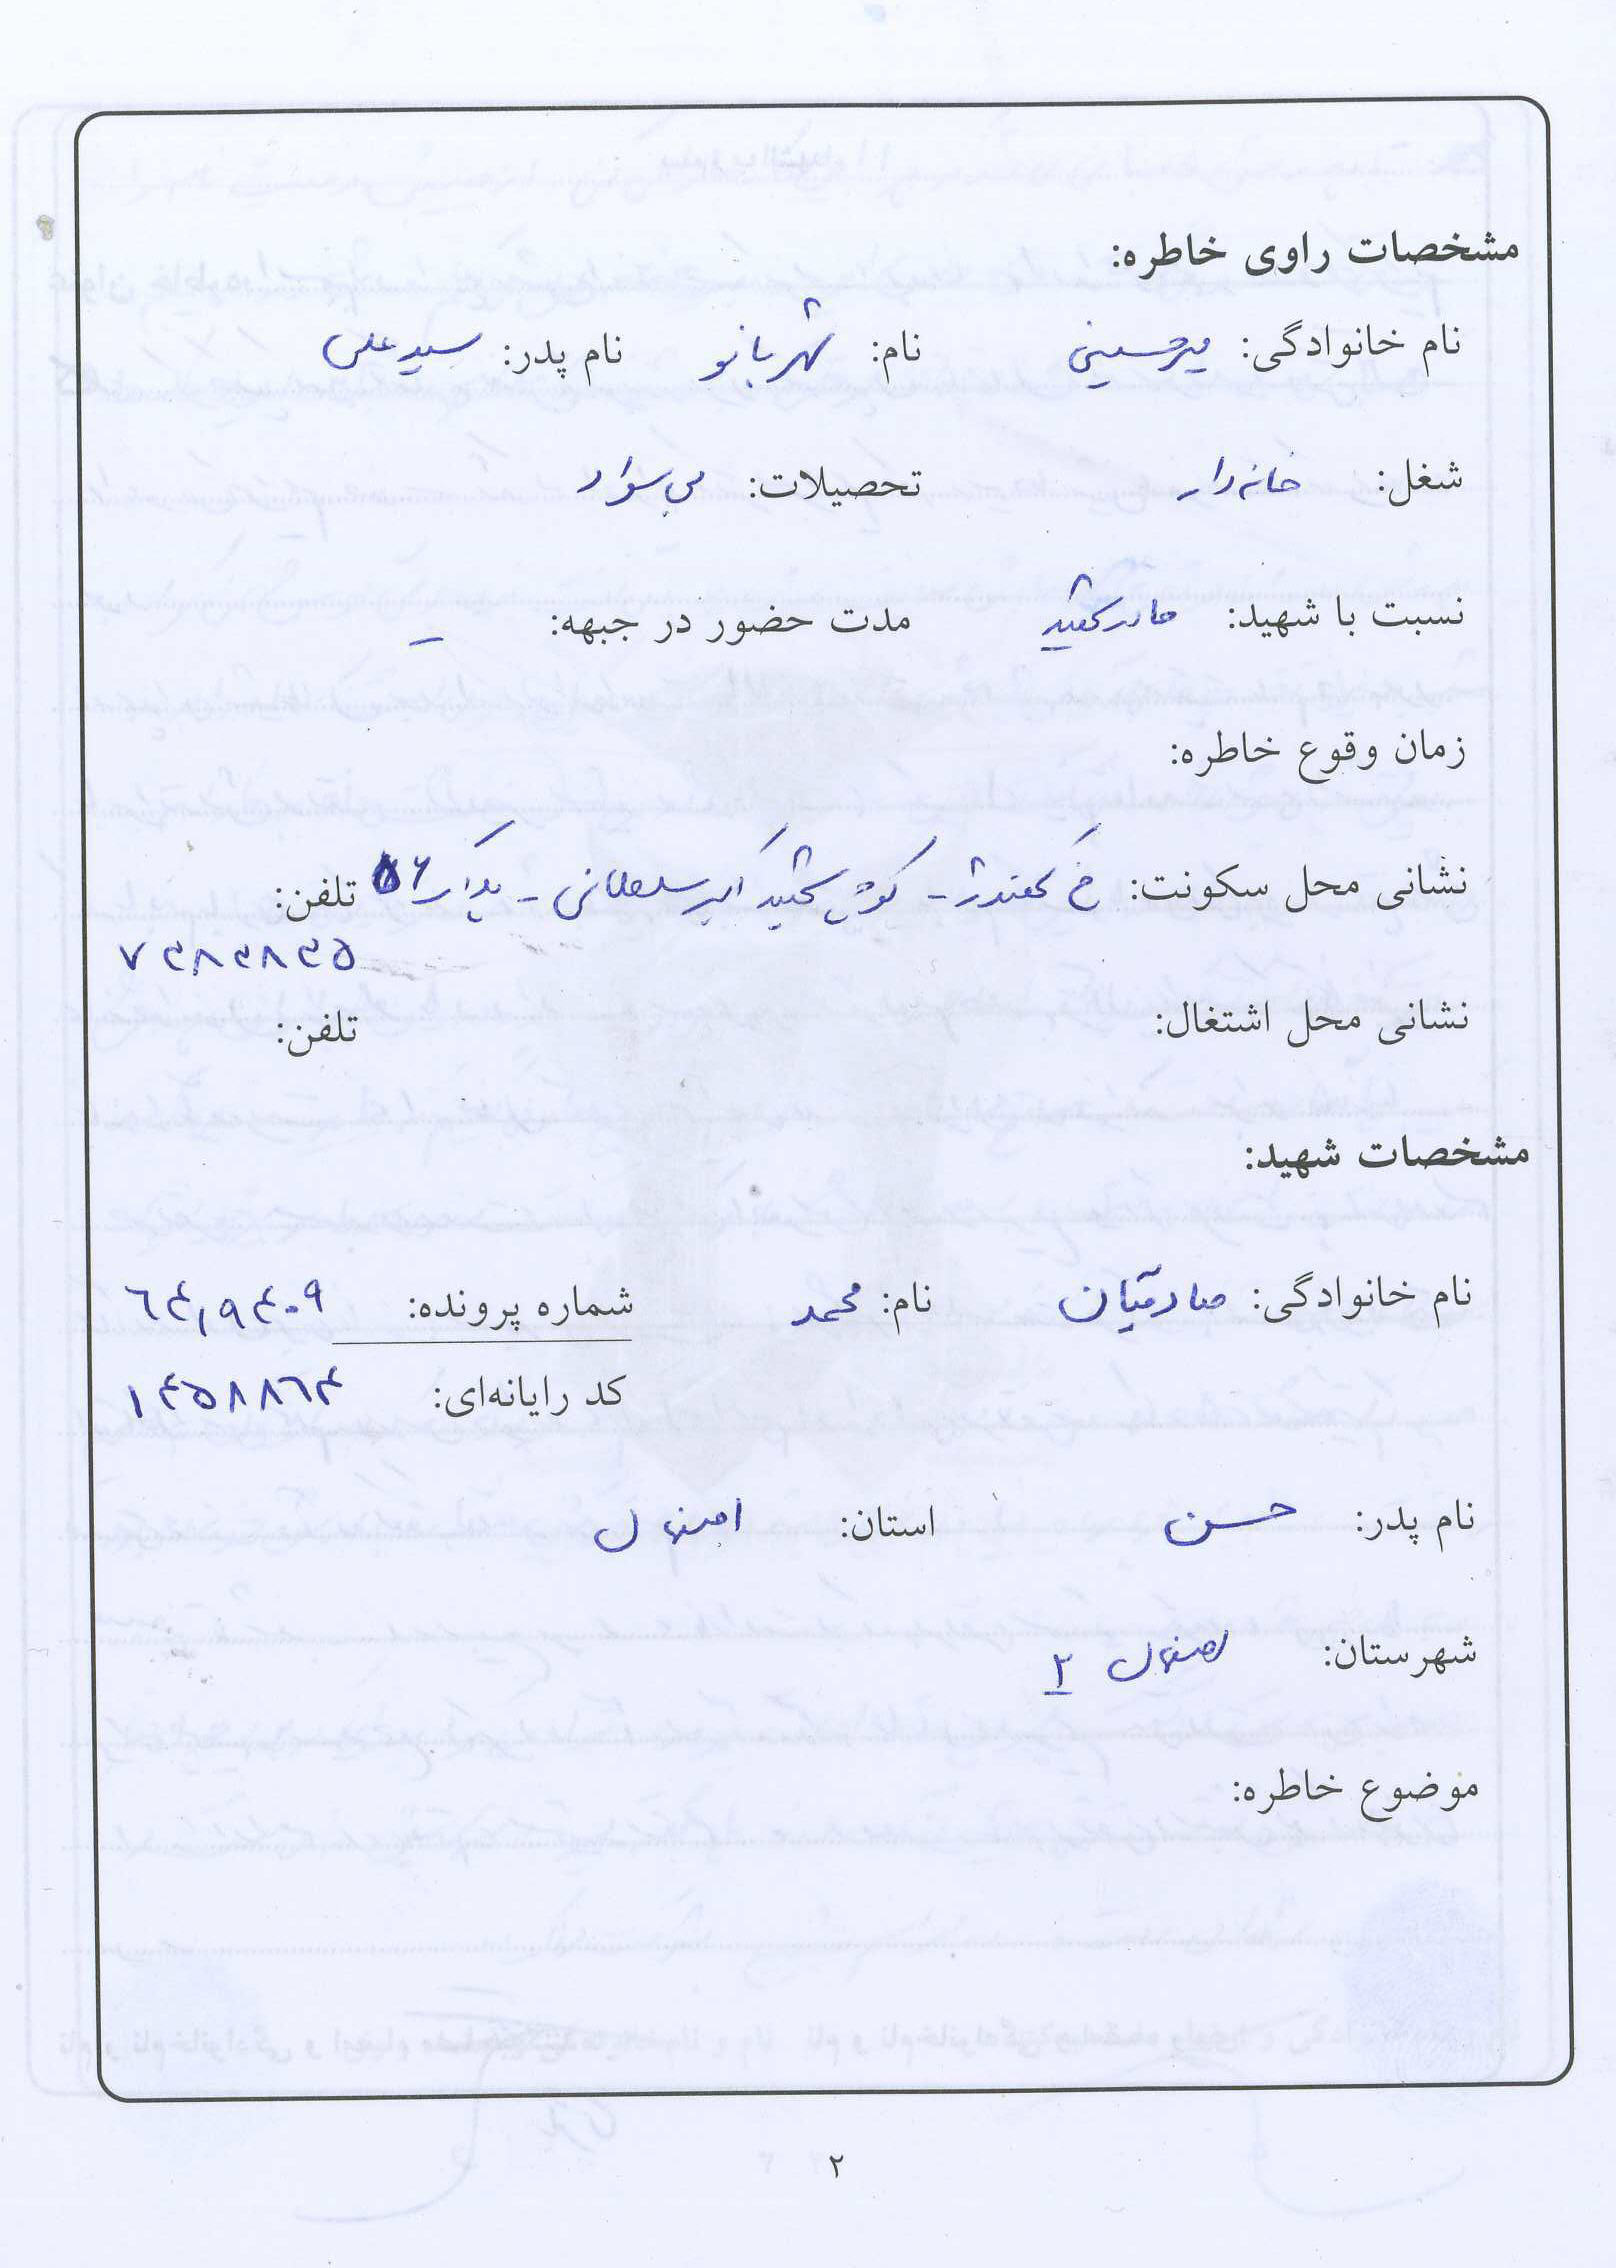 مشخصات راوی خاطره:
نام خانوادگی: میرحسینی نام: شهربانو نام پدر: سیدعلی
شغل: خانه‌دار تحصیلات: بی‌سواد
نسبت با شهید: مادر شهید مدت حضور در جبهه: –
زمان وقوع خاطره:
نشانی محل سکونت: خ کهندژ - کوی شهید اکبر سلطانی - پلاک ۵۶ تلفن:
۷۳۸۳۸۳۵
نشانی محل اشتغال: تلفن:
مشخصات شهید:
نام خانوادگی: صادقیان نام: محمد شماره پرونده: ۶۴۱۹۴۰۹
کد رایانه‌ای: ۱۴۵۸۸۶۴
نام پدر: حسن استان: اصفهان
شهرستان: اصفهان ۲
موضوع خاطره:
۲